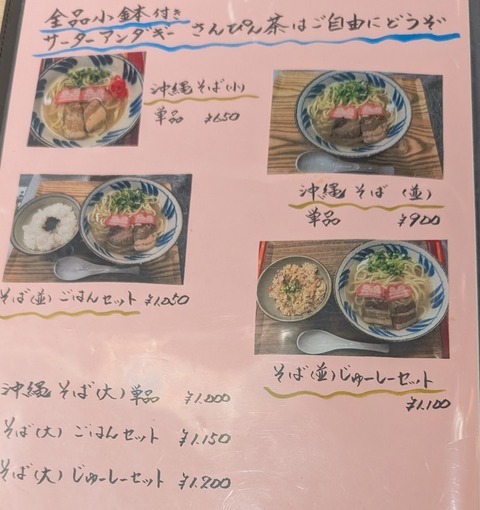 全品小鉢付き
サーターアンダギー さんぴん茶はご自由にどうぞ
沖縄そば(小)
単品 ¥650
沖縄そば(並)
単品 ¥900
そば(並)ごはんセット ¥1,050
そば(並)じゅーしーセット
¥1,100
沖縄そば(大)単品 ¥1,000
そば(大)ごはんセット ¥1,150
そば(大)じゅーしーセット ¥1,200